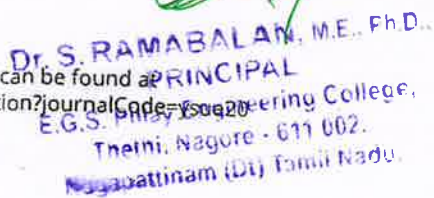 Dr. S. RAMABALAN, M.E., Ph.D.,
can be found a
PRINCIPAL
tion?journalCode=ysuq20
E.G.S. Pillay Engineering College,
Thethi, Nagore - 611 002.
Nagapattinam (Dt) Tamil Nadu.